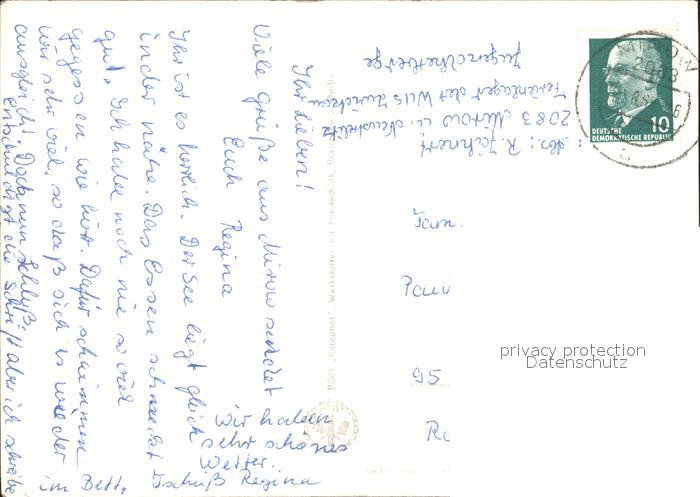 Ihr Lieben!
Viele Grüße aus Mirow sendet
Euch Regina
Ihr ist es herrlich. Der See liegt gleich
in der Nähe. Das Essen schmeckt
gut. Ich habe noch nie so viel
gegessen wie hier. Dafür schwimmen
wir sehr viel, so daß sich es wieder
ausgleicht. Doch nun Schluß.
Entschuldigt die Schrift aber ich schreibe
im Bett. Tschüß Regina
Wir haben
sehr schönes
Wetter.
Abs.: R. Jähnert
2083 Mirow ü. Neustrelitz
Ferienlager des
Jugendherberge
PGH "Rotophot", Werkstätten für Fototechnik,
MIROW
2083
DEUTSCHE
DEMOKRATISCHE REPUBLIK
10
Fam.
Pau
95
privacy protection
Datenschutz